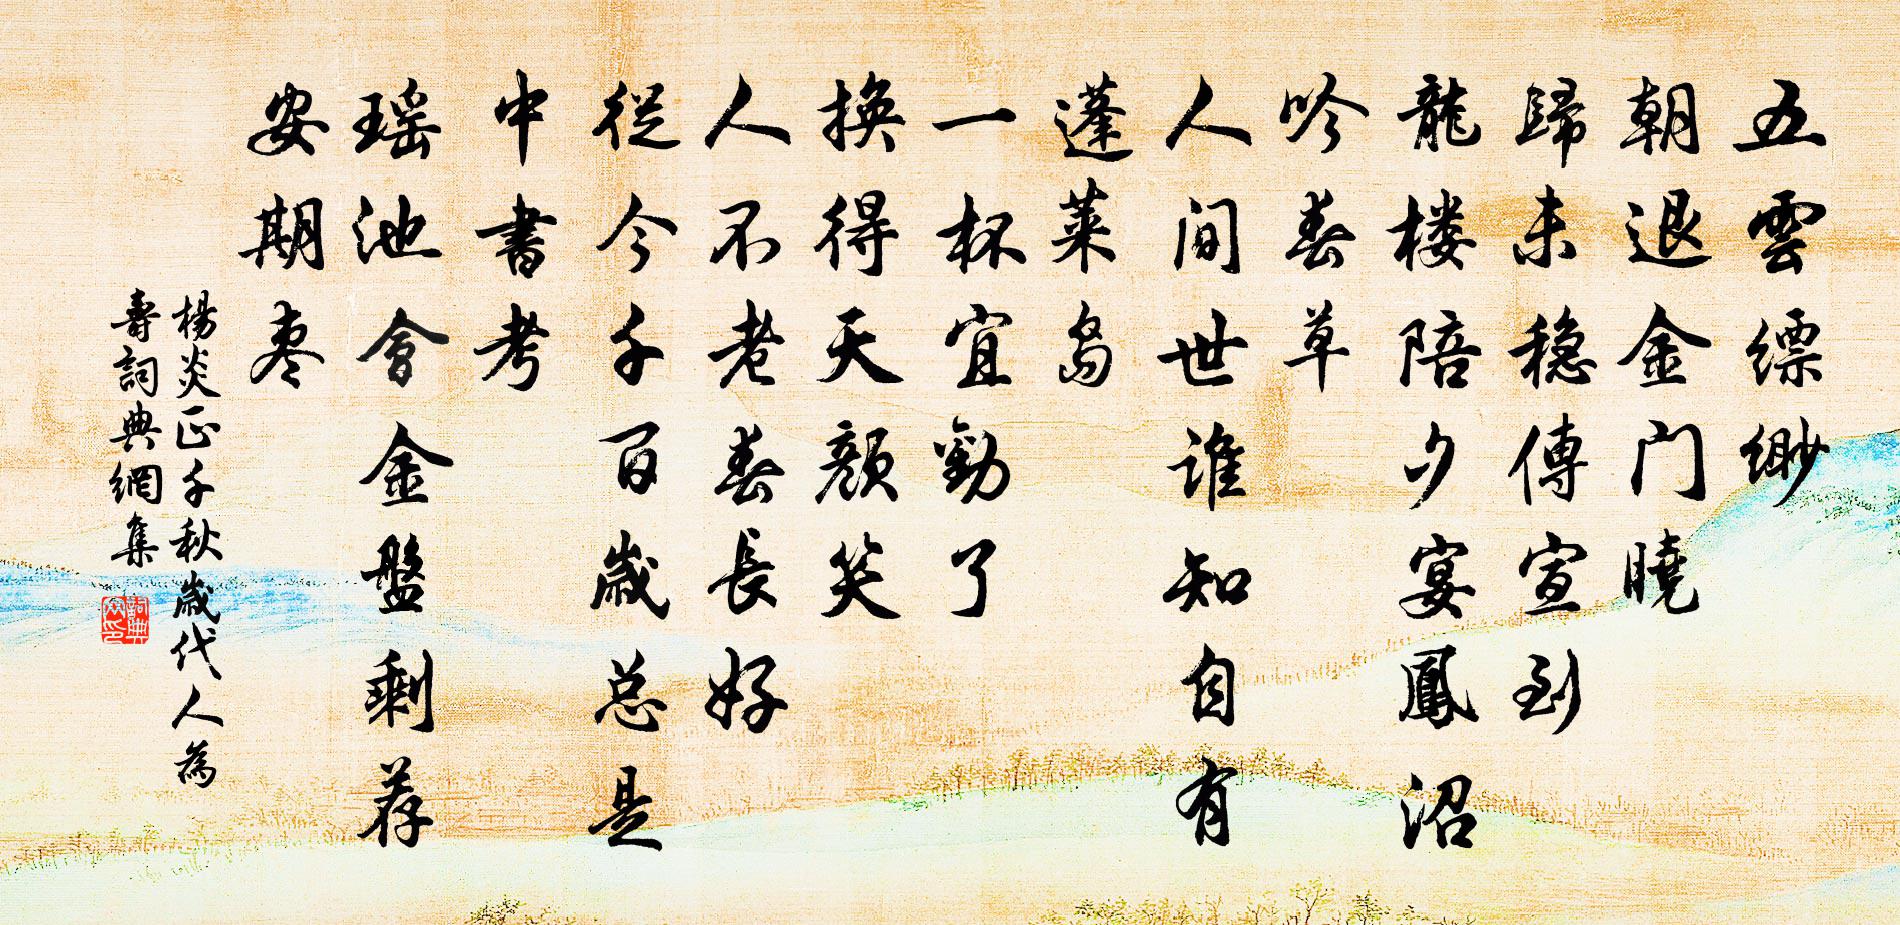 五雲縹緲
朝退金门曉
歸未穏傳宣到
龍楼陪夕宴鳳沼
吟春草
人间世谁知自有
蓬莱島
一杯宜勸了
换得天颜笑
人不老春長好
従今千百歳总是
中書考
瑶池會金盤剩荐
安期枣
楊炎正千秋歳代人為
壽詞典網集
詞典網印